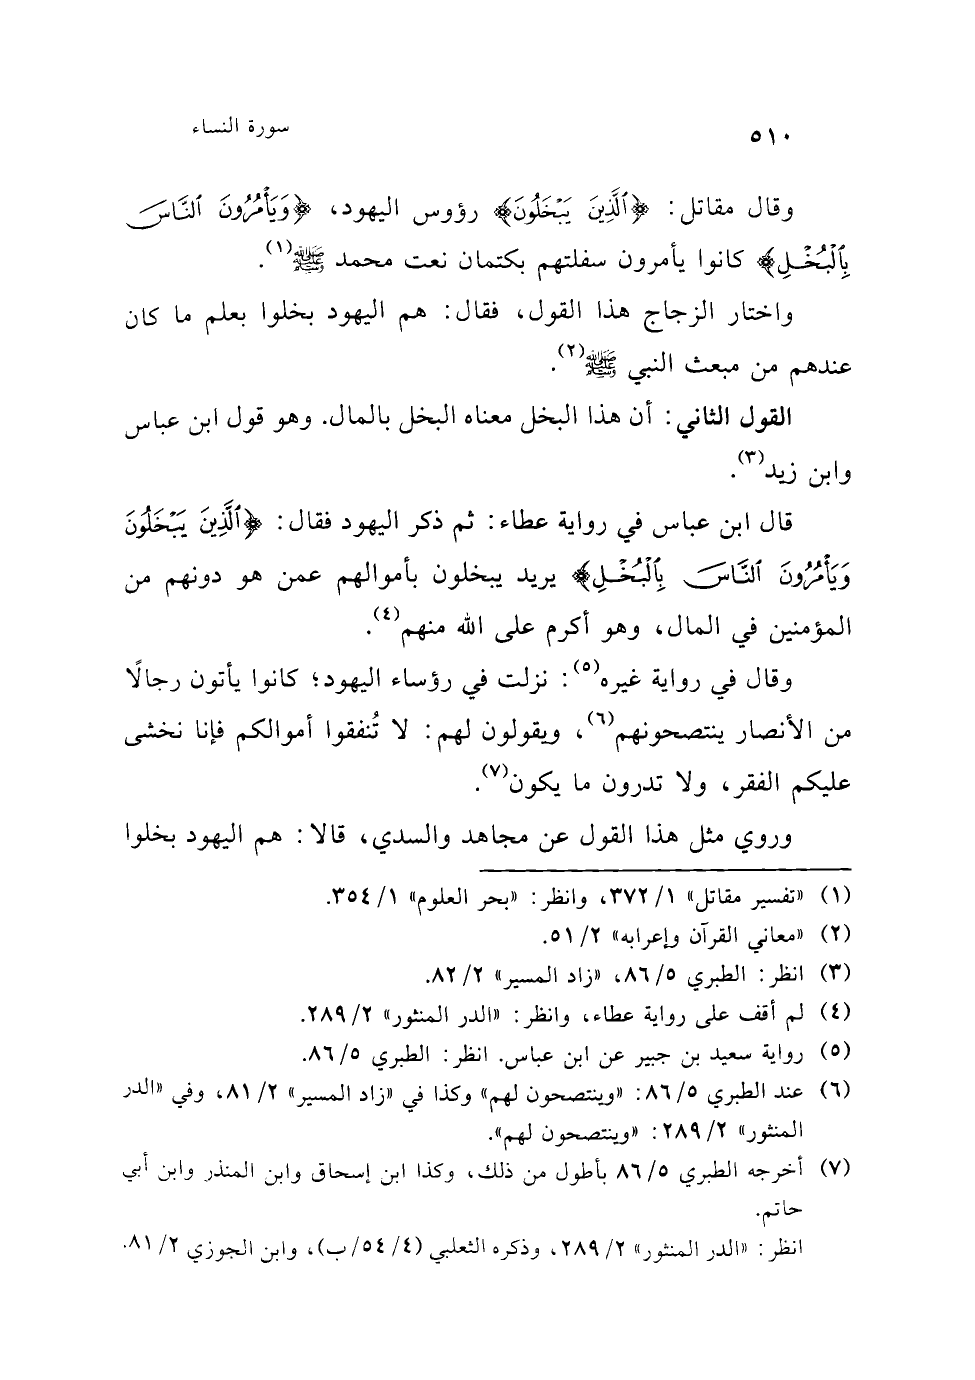 ٥١٠ سورة النساء
وقال مقاتل: ﴿ٱلَّذِينَ يَبْخَلُونَ﴾ رؤوس اليهود، ﴿وَيَأْمُرُونَ ٱلنَّاسَ
بِٱلْبُخْلِ﴾ كانوا يأمرون سفلتهم بكتمان نعت محمد ﷺ(١).
واختار الزجاج هذا القول، فقال: هم اليهود بخلوا بعلم ما كان
عندهم من مبعث النبي ﷺ(٢).
القول الثاني: أن هذا البخل معناه البخل بالمال. وهو قول ابن عباس
وابن زيد(٣).
قال ابن عباس في رواية عطاء: ثم ذكر اليهود فقال: ﴿ٱلَّذِينَ يَبْخَلُونَ
وَيَأْمُرُونَ ٱلنَّاسَ بِٱلْبُخْلِ﴾ يريد يبخلون بأموالهم عمن هو دونهم من
المؤمنين في المال، وهو أكرم على الله منهم(٤).
وقال في رواية غيره(٥): نزلت في رؤساء اليهود؛ كانوا يأتون رجالًا
من الأنصار ينتصحونهم(٦)، ويقولون لهم: لا تُنفقوا أموالكم فإنا نخشى
عليكم الفقر، ولا تدرون ما يكون(٧).
وروي مثل هذا القول عن مجاهد والسدي، قالا: هم اليهود بخلوا
(١) «تفسير مقاتل» ١/ ٣٧٢، وانظر: «بحر العلوم» ١/ ٣٥٤.
(٢) «معاني القرآن وإعرابه» ٢/ ٥١.
(٣) انظر: الطبري ٥/ ٨٦، «زاد المسير» ٢/ ٨٢.
(٤) لم أقف على رواية عطاء، وانظر: «الدر المنثور» ٢/ ٢٨٩.
(٥) رواية سعيد بن جبير عن ابن عباس. انظر: الطبري ٥/ ٨٦.
(٦) عند الطبري ٥/ ٨٦: «وينتصحون لهم» وكذا في «زاد المسير» ٢/ ٨١، وفي «الدر
المنثور» ٢/ ٢٨٩: «وينتصحون لهم».
(٧) أخرجه الطبري ٥/ ٨٦ بأطول من ذلك، وكذا ابن إسحاق وابن المنذر وابن أبي
حاتم.
انظر: «الدر المنثور» ٢/ ٢٨٩، وذكره الثعلبي (٤/ ٥٤/ ب)، وابن الجوزي ٢/ ٨١.